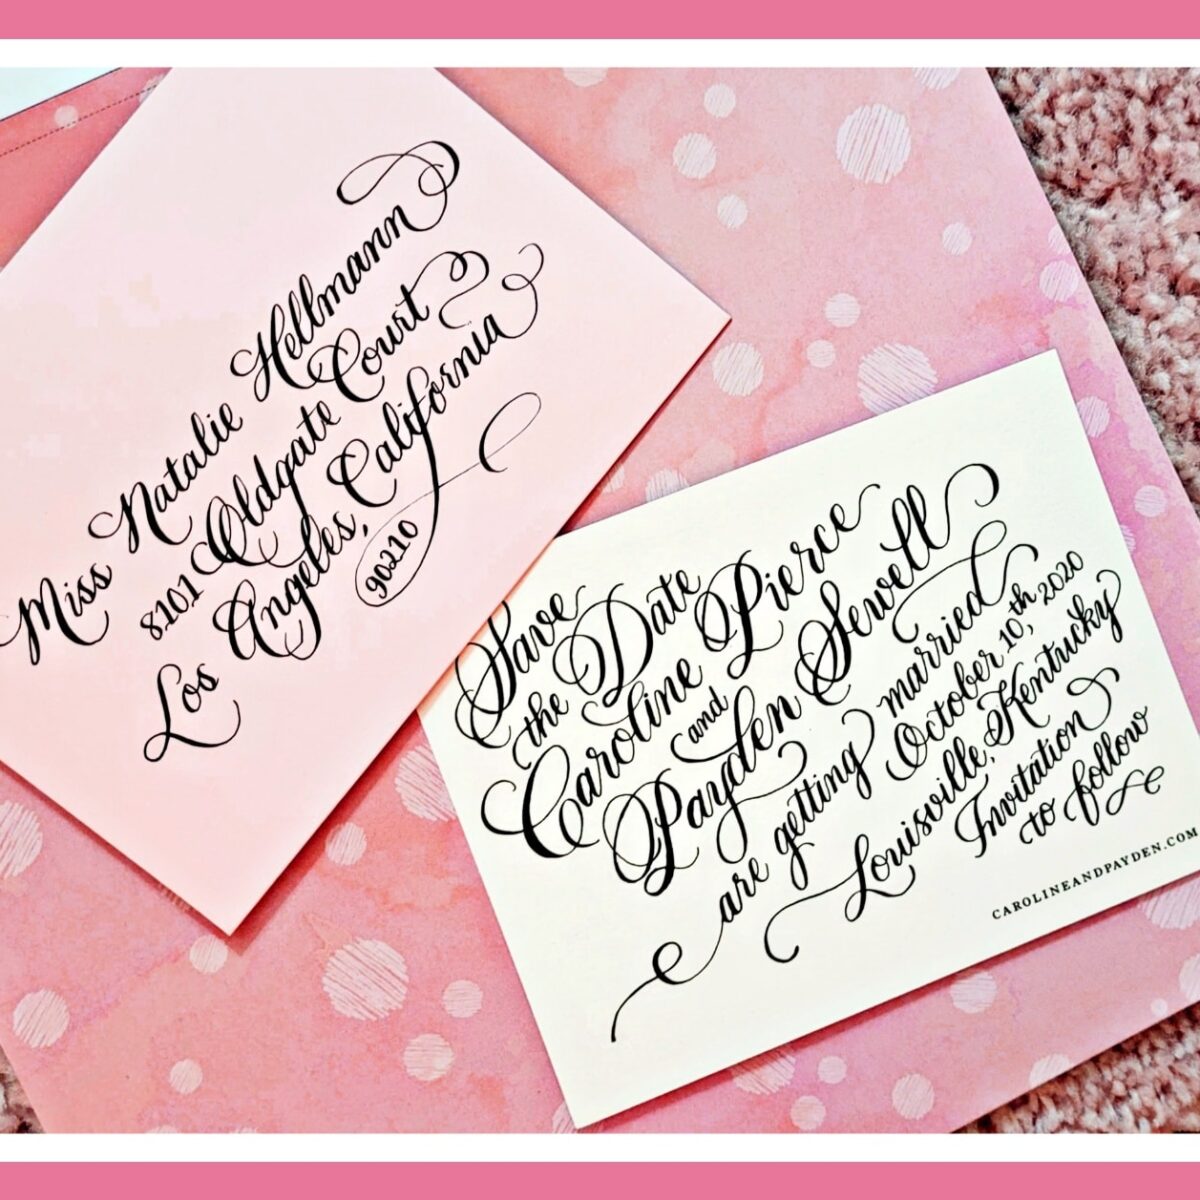 Miss Natalie Hellmann
8101 Oldgate Court
Los Angeles, California
90210
Save
the Date
Caroline Pierce
and
Payden Sewell
are getting married
October 10th, 2020
Louisville, Kentucky
Invitation
to follow
CAROLINEANDPAYDEN.COM